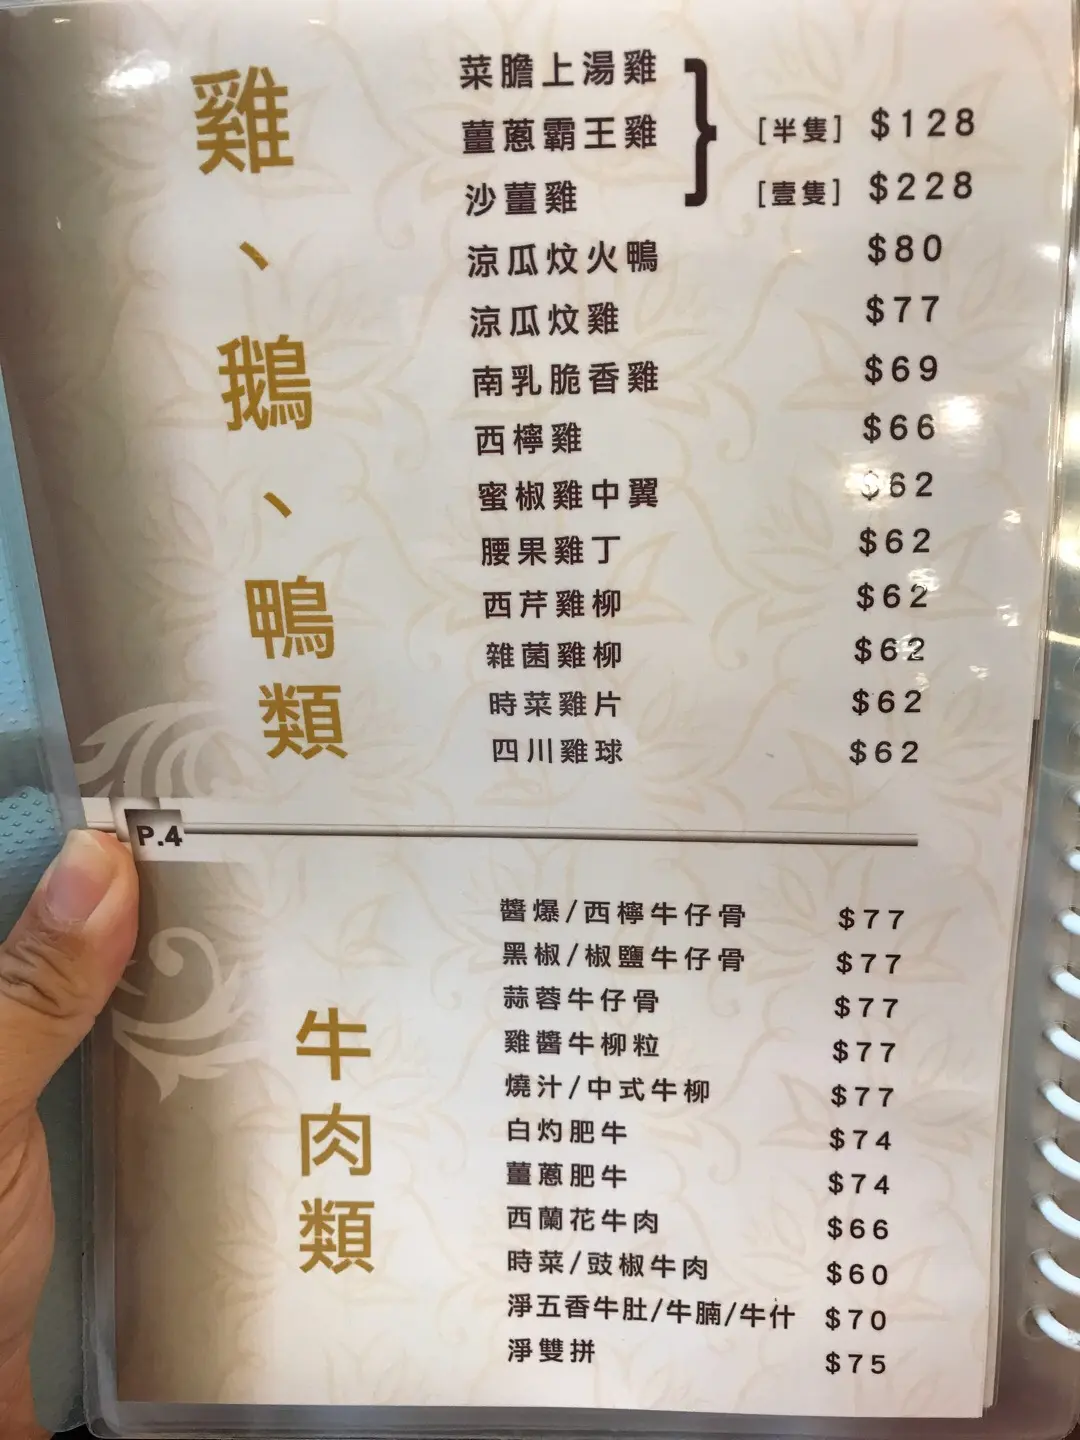 雞、鵝、鴨類
菜膽上湯雞
薑蔥霸王雞 [半隻] $128
沙薑雞 [壹隻] $228
涼瓜炆火鴨 $80
涼瓜炆雞 $77
南乳脆香雞 $69
西檸雞 $66
蜜椒雞中翼 $62
腰果雞丁 $62
西芹雞柳 $62
雜菌雞柳 $62
時菜雞片 $62
四川雞球 $62
P.4
牛肉類
醬爆/西檸牛仔骨 $77
黑椒/椒鹽牛仔骨 $77
蒜蓉牛仔骨 $77
雞醬牛柳粒 $77
燒汁/中式牛柳 $77
白灼肥牛 $74
薑蔥肥牛 $74
西蘭花牛肉 $66
時菜/豉椒牛肉 $60
淨五香牛肚/牛腩/牛什 $70
淨雙拼 $75